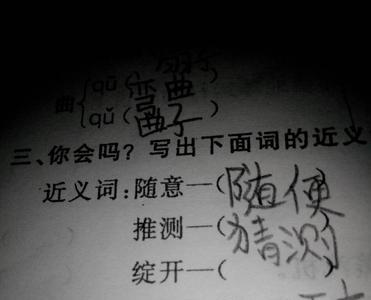 曲 qū(弯曲)
qǔ(曲子)
三、你会吗?写出下面词的近义
近义词:随意—(随便)
推测—(猜测)
绽开—(